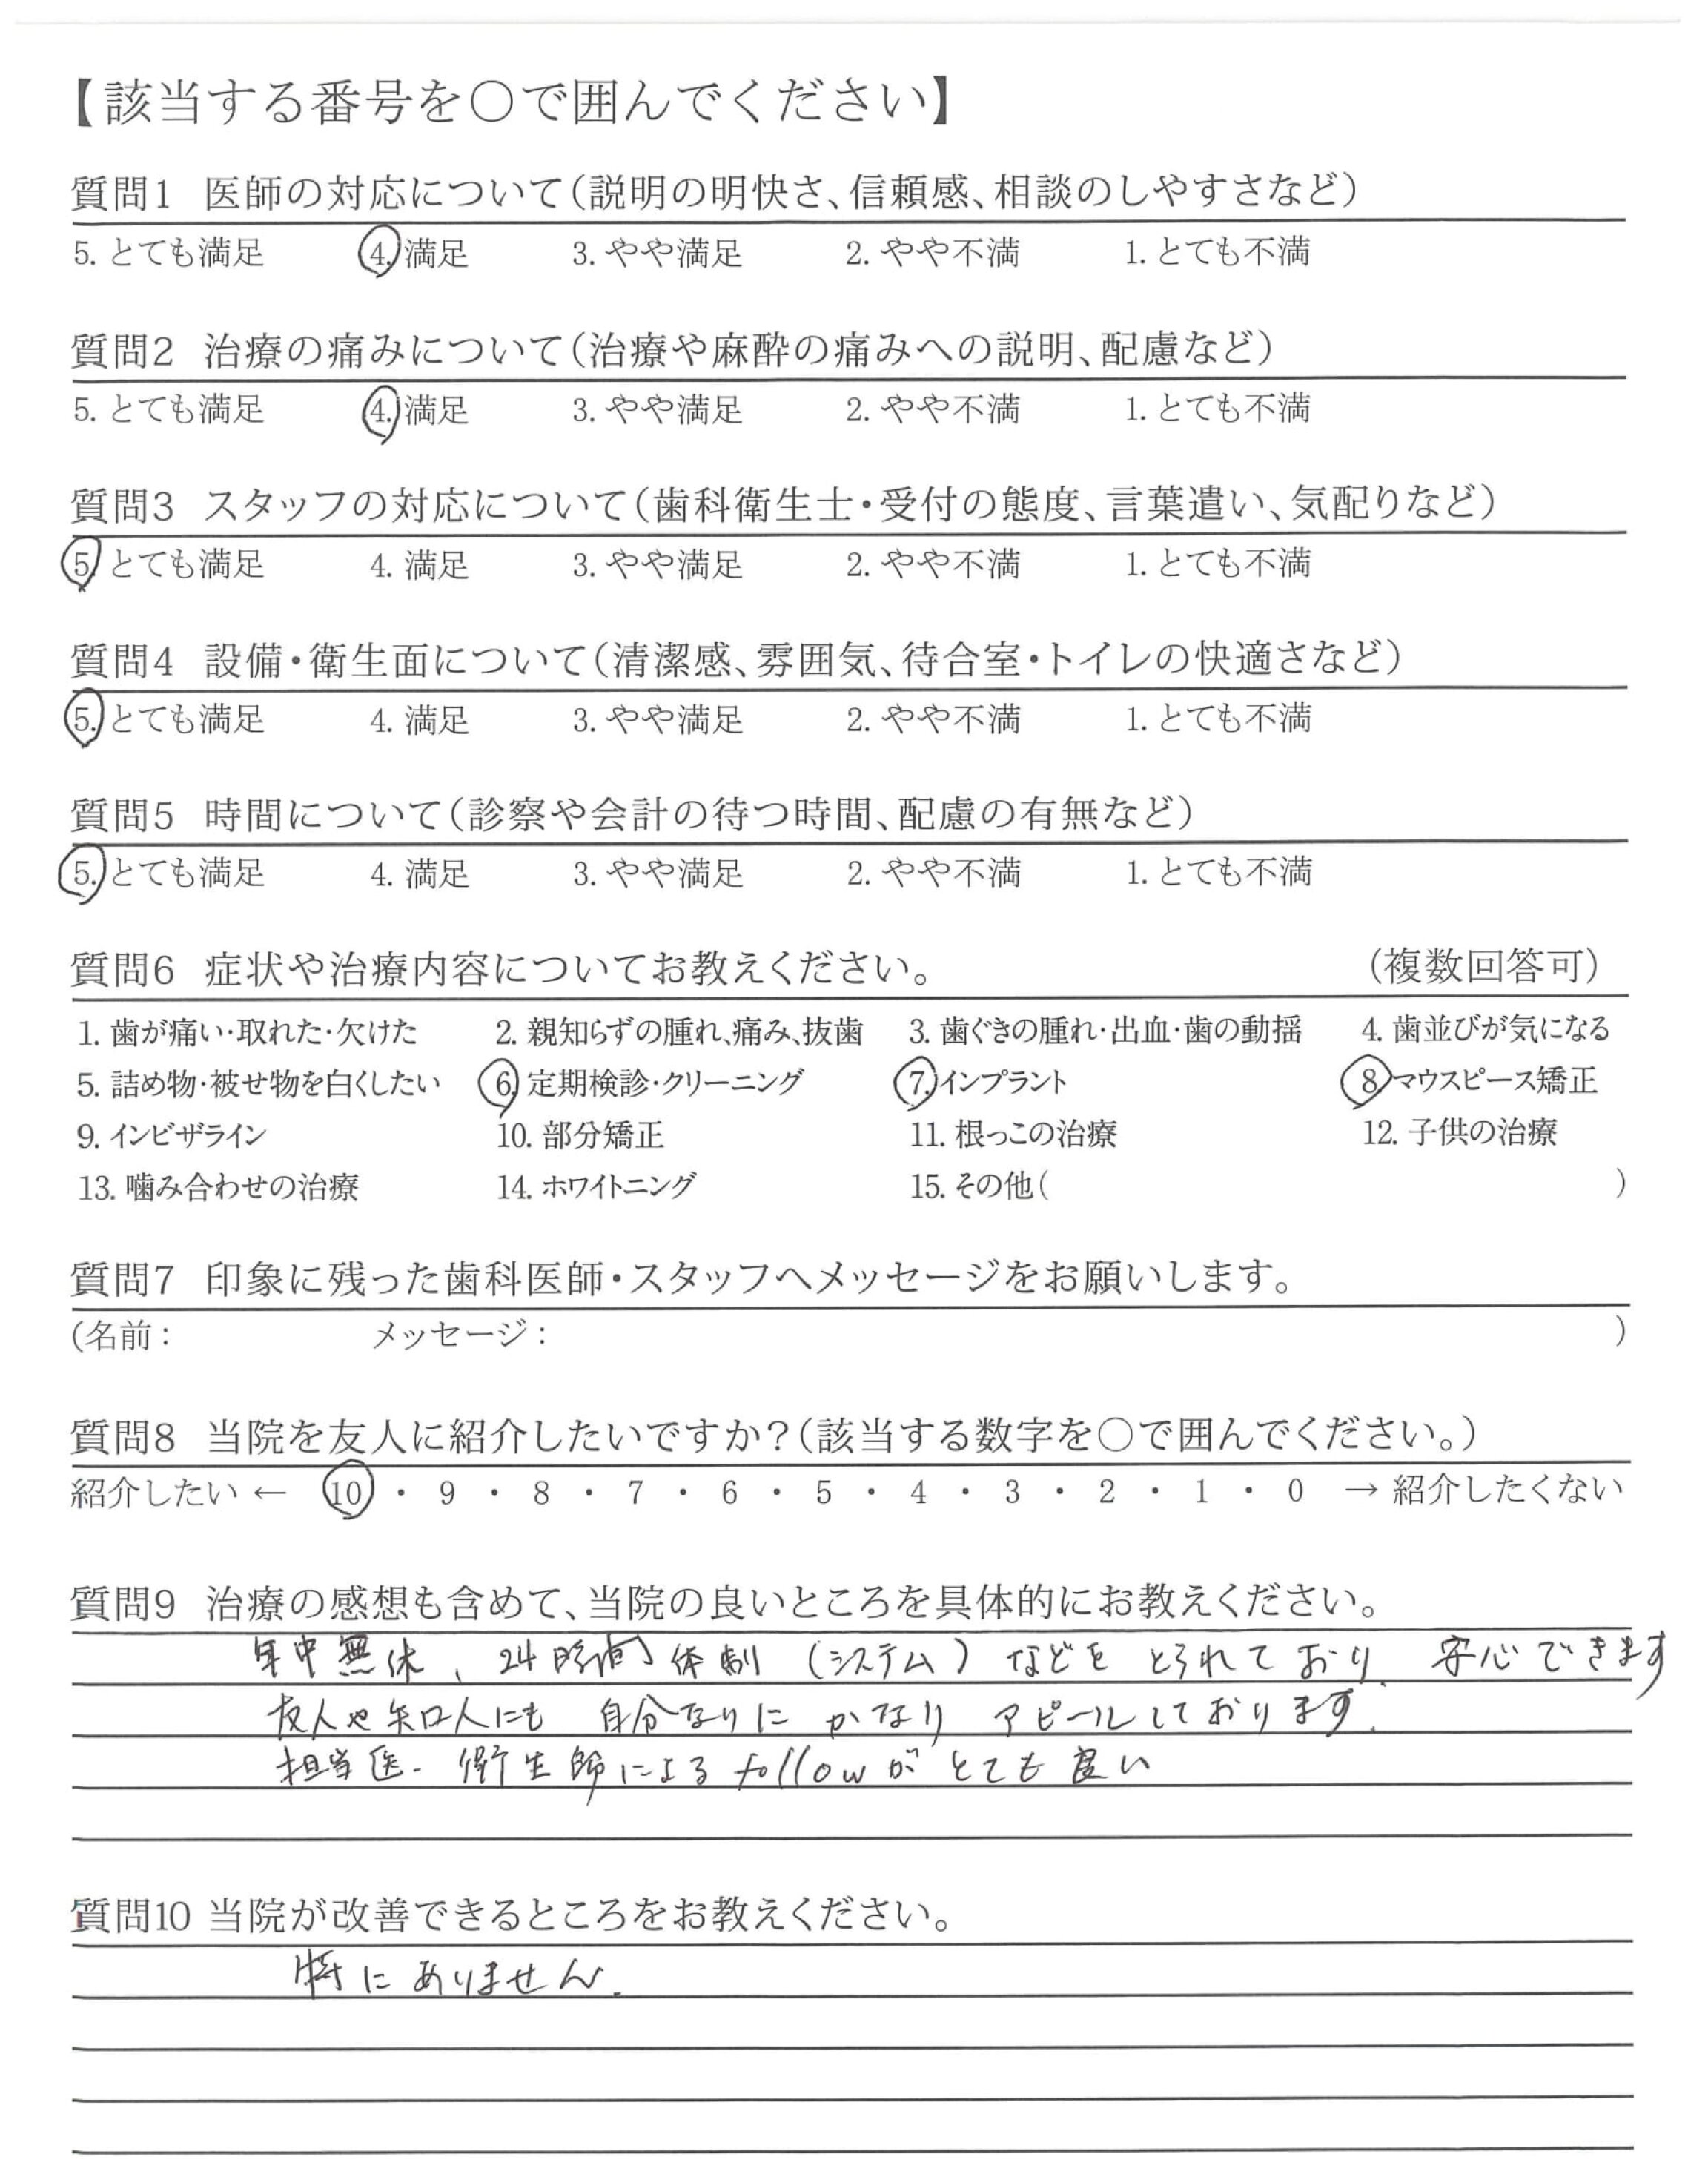 【該当する番号を○で囲んでください】
質問1 医師の対応について(説明の明快さ、信頼感、相談のしやすさなど)
5. とても満足 4. 満足 3. やや満足 2. やや不満 1. とても不満
質問2 治療の痛みについて(治療や麻酔の痛みへの説明、配慮など)
5. とても満足 4. 満足 3. やや満足 2. やや不満 1. とても不満
質問3 スタッフの対応について(歯科衛生士・受付の態度、言葉遣い、気配りなど)
5. とても満足 4. 満足 3. やや満足 2. やや不満 1. とても不満
質問4 設備・衛生面について(清潔感、雰囲気、待合室・トイレの快適さなど)
5. とても満足 4. 満足 3. やや満足 2. やや不満 1. とても不満
質問5 時間について(診察や会計の待つ時間、配慮の有無など)
5. とても満足 4. 満足 3. やや満足 2. やや不満 1. とても不満
質問6 症状や治療内容についてお教えください。 (複数回答可)
1. 歯が痛い・取れた・欠けた 2. 親知らずの腫れ、痛み、抜歯 3. 歯ぐきの腫れ・出血・歯の動揺 4. 歯並びが気になる
5. 詰め物・被せ物を白くしたい 6. 定期検診・クリーニング 7. インプラント 8. マウスピース矯正
9. インビザライン 10. 部分矯正 11. 根っこの治療 12. 子供の治療
13. 噛み合わせの治療 14. ホワイトニング 15. その他( )
質問7 印象に残った歯科医師・スタッフへメッセージをお願いします。
(名前: メッセージ: )
質問8 当院を友人に紹介したいですか?(該当する数字を○で囲んでください。)
紹介したい ← 10 ・ 9 ・ 8 ・ 7 ・ 6 ・ 5 ・ 4 ・ 3 ・ 2 ・ 1 ・ 0 → 紹介したくない
質問9 治療の感想も含めて、当院の良いところを具体的にお教えください。
年中無休、24時間体制(システム)などをとられており、安心できます
友人や知人にも 自分なりに かなり アピールしております.
担当医・衛生師によるfollowがとても良い
質問10 当院が改善できるところをお教えください。
特にありません.